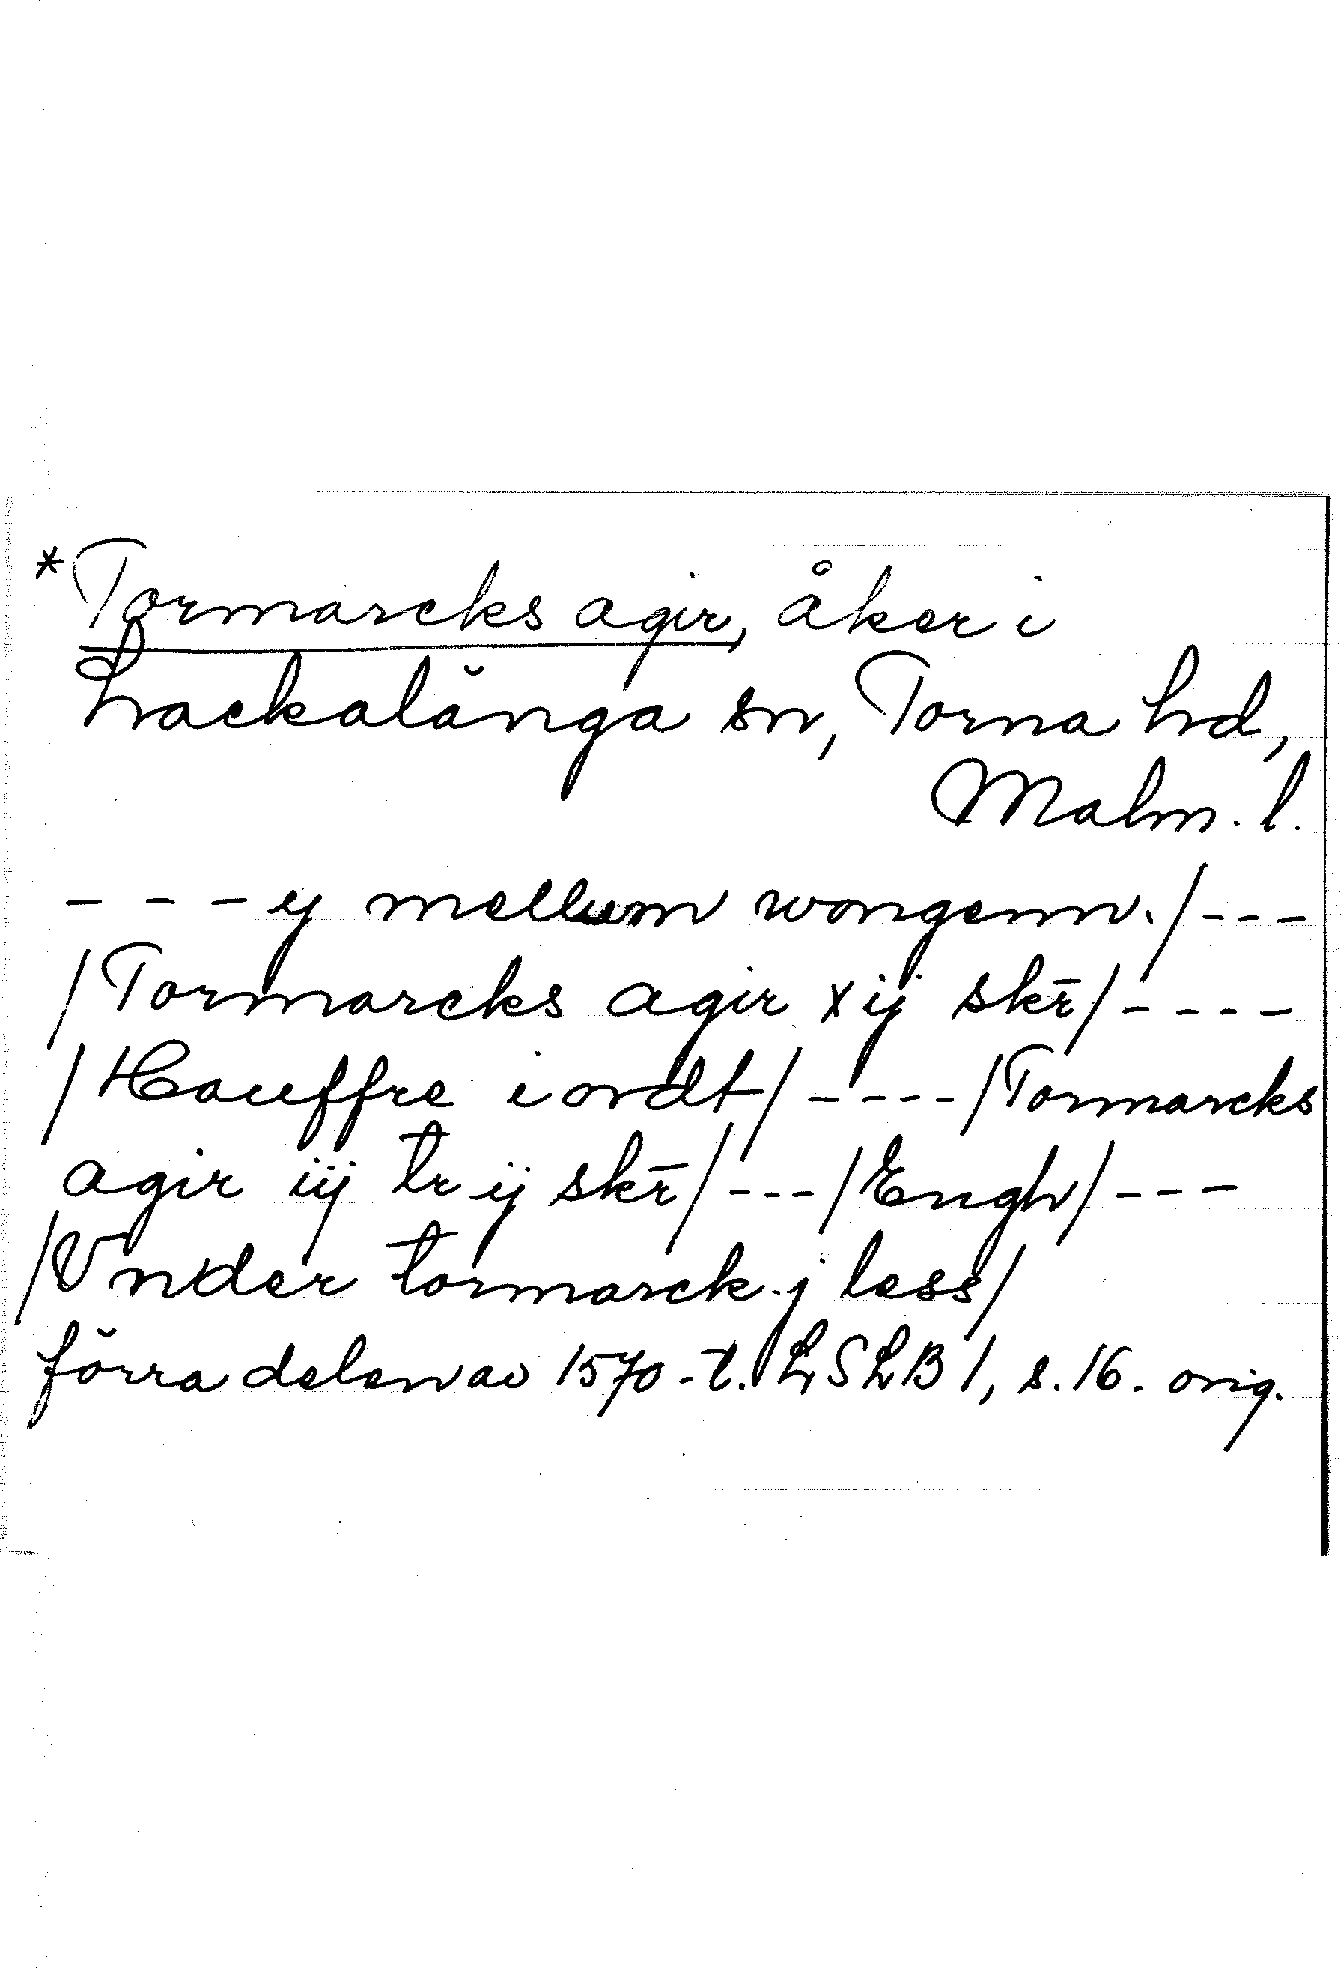 *Tormarcks agir, åker i
Lackalänga sn, Torna hd,
Malm. l.
- - - ij mellum wongenn./- - -
/Tormarcks agir xij skr̄/- - - -
/Haeuffre iordt/- - - -/Tormarcks
agir iij tr ij skr̄/- - -/Engh/- - -
/Vnder tormarck j less/
förra delen av 1570-t. LSLB 1, s. 16. orig.